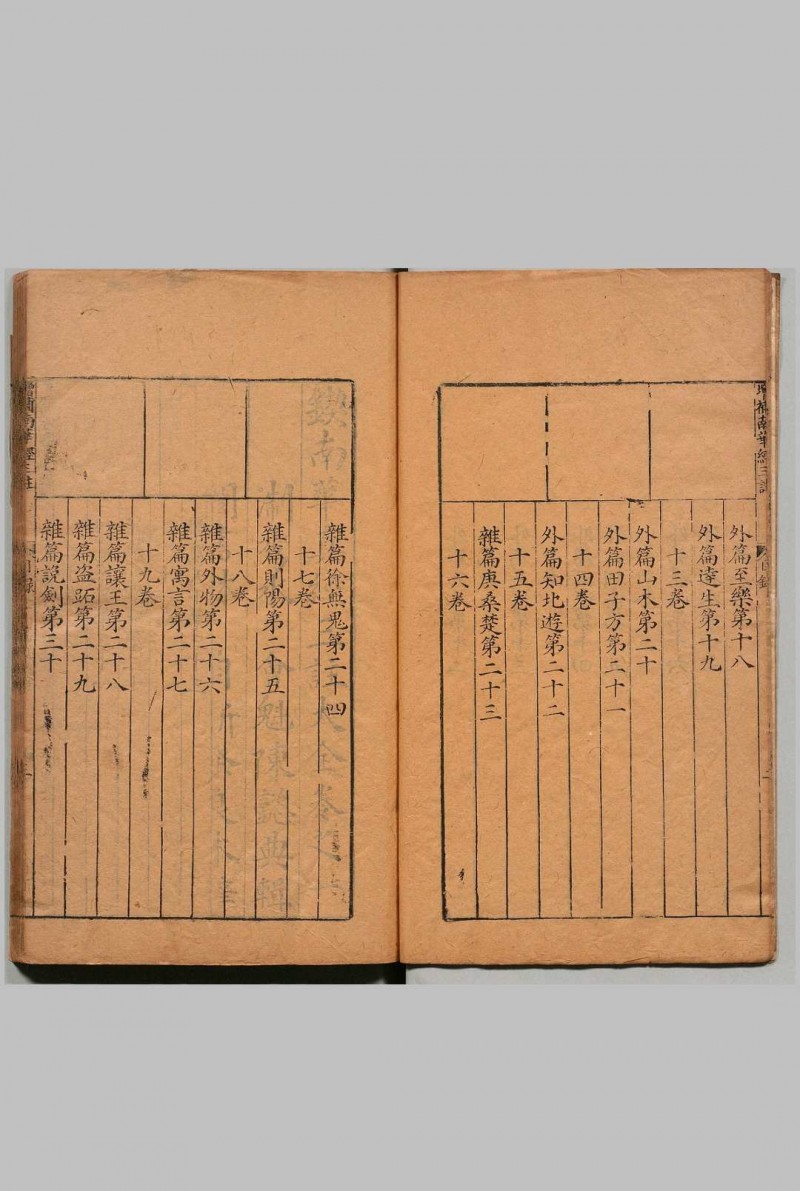 外篇至樂第十八
外篇達生第十九
十三卷
外篇山木第二十
外篇田子方第二十一
十四卷
外篇知北遊第二十二
十五卷
雜篇庚桑楚第二十三
十六卷
雜篇徐無鬼第二十四
十七卷
雜篇則陽第二十五
十八卷
雜篇外物第二十六
雜篇寓言第二十七
十九卷
雜篇讓王第二十八
雜篇盗跖第二十九
雜篇說劍第三十